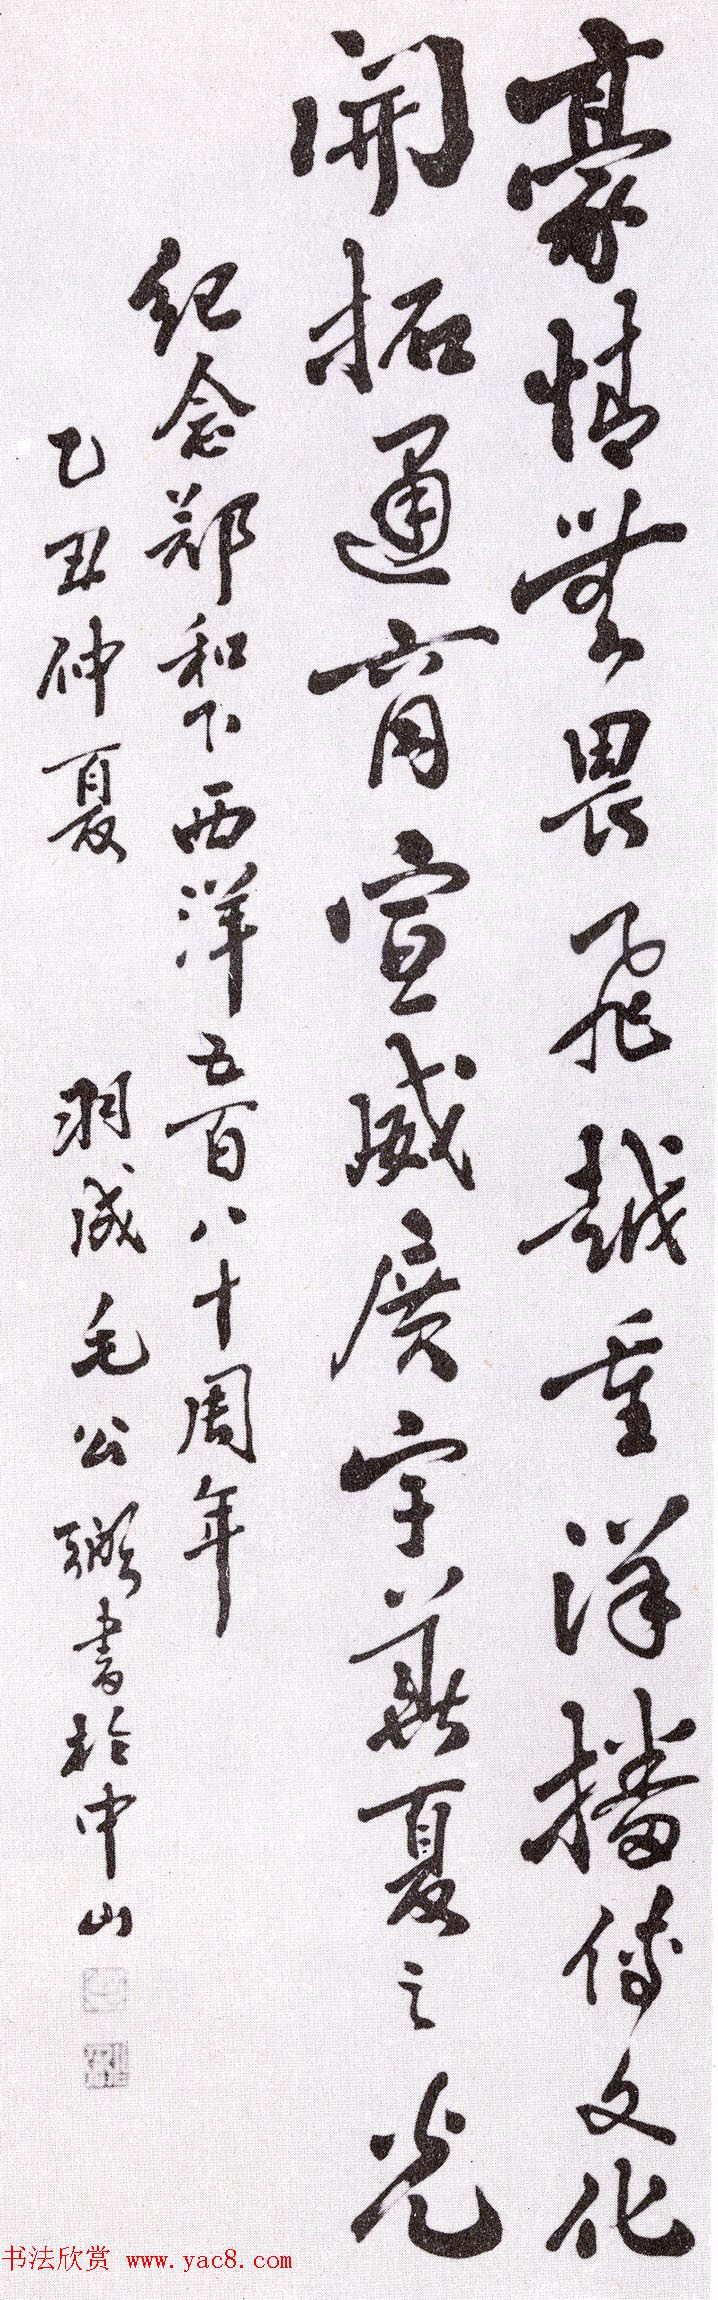 豪情無畏飛越重洋播傳文化
開拓通商宣威廣宇華夏之光
纪念郑和下西洋五百八十周年
乙丑仲夏 羽成毛公聯書於中山
书法欣赏 www.yac8.com